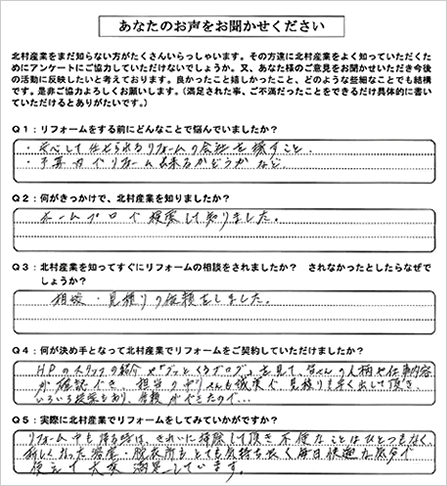 あなたのお声をお聞かせください
北村産業をまだ知らない方がたくさんいらっしゃいます。その方達に北村産業をよく知っていただくため
にアンケートにご協力していただけないでしょうか。又、あなた様のご意見をお聞かせいただき今後
の活動に反映したいと考えております。良かったこと嬉しかったこと、どのような些細なことでも結構
です。是非ご協力よろしくお願いします。(満足された事、ご不満だったことをできるだけ具体的に書い
ていただけるとありがたいです。)
Q1:リフォームをする前にどんなことで悩んでいましたか?
・安心して任せられるリフォームの会社を探すこと。
・予算内でリフォーム出来るかどうか など
Q2:何がきっかけで、北村産業を知りましたか?
ホームプロで検索して知りました。
Q3:北村産業を知ってすぐにリフォームの相談をされましたか? されなかったとしたらなぜで
しょうか?
相談・見積りの依頼をしました。
Q4:何が決め手となって北村産業でリフォームをご契約していただけましたか?
HPのスタッフの紹介や「グッとくるブログ」を見て、皆さんの人柄や仕事内容
が確認でき、担当の中りさんも誠実で見積りも早く出して頂き
いろいろ提案もあり、信頼ができたので…
Q5:実際に北村産業でリフォームをしてみていかがですか?
リフォーム中も帰る時は、きれいに掃除して頂き不便なことはひとつもなく、
新しくなった浴室・脱衣所もとても気持ち良く毎日快適な気分で
使えて大変満足しています。